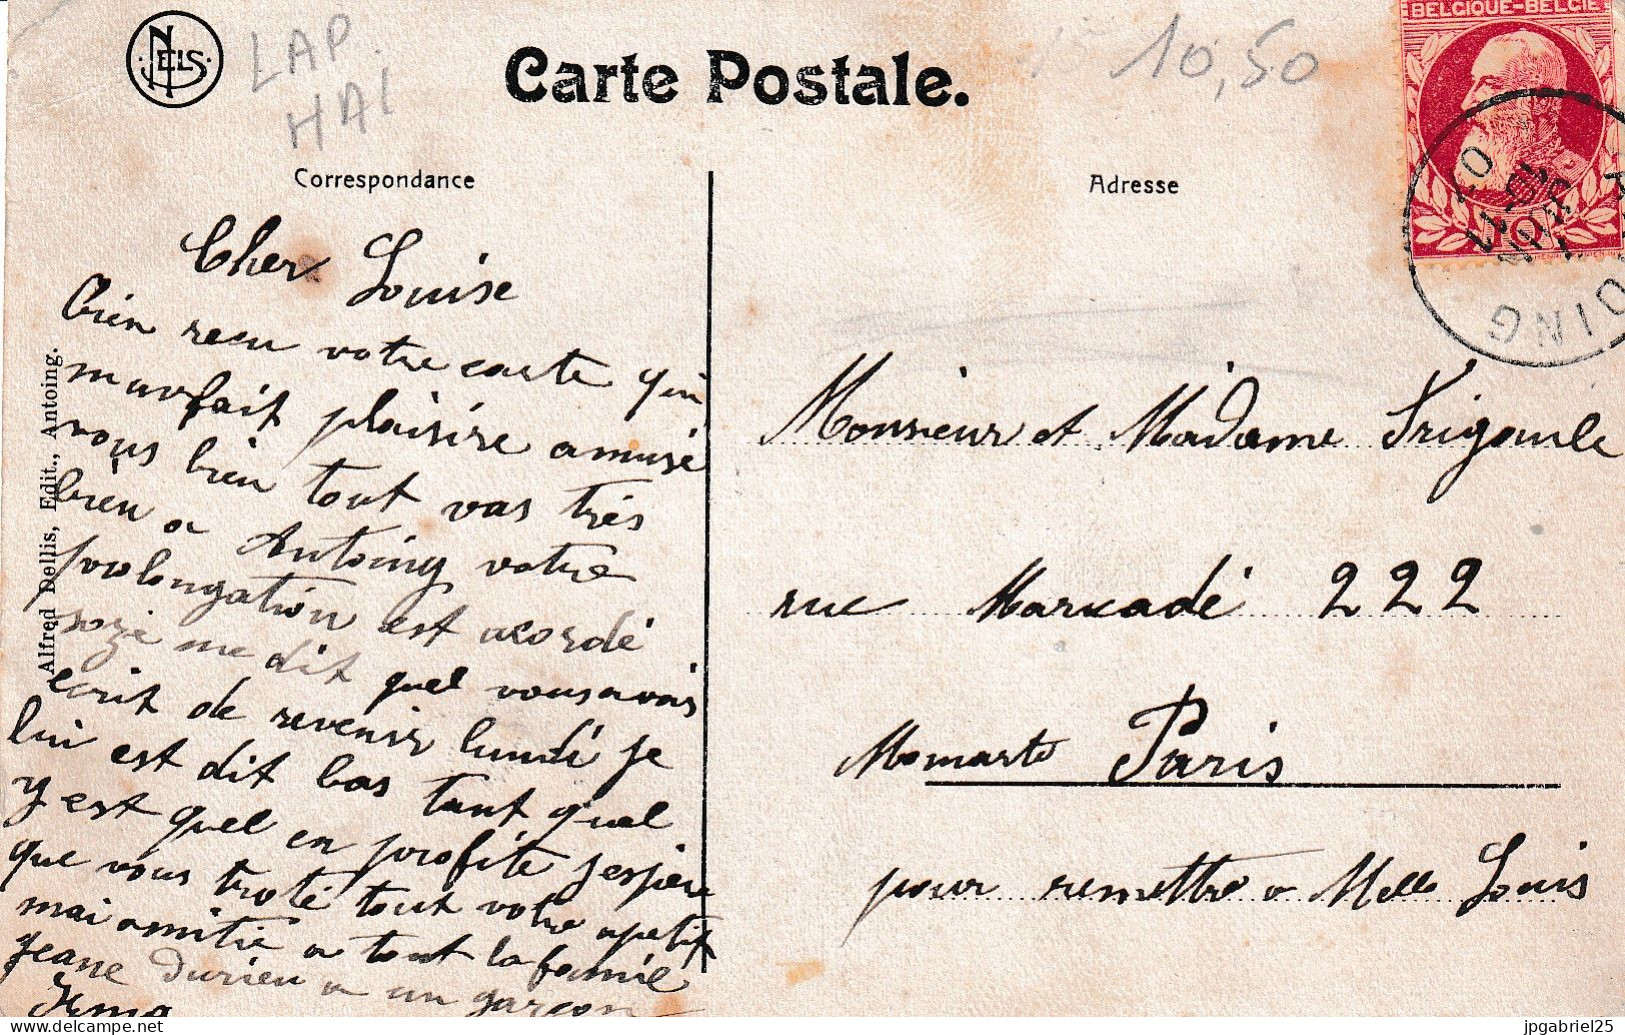 NELS
LAP.
HAI
Carte Postale.
10,50
BELGIQUE-BELGIË
Correspondance
Adresse
Alfred Dellis, Edit., Antoing.
Cher Louise
bien recu votre carte qui
m'a fait plaisire amusé
vous bien tout vas trés
bien a Antoing votre
prolongation est acordé
me dit quel vous avais
ecrit de revenir lundi je
lui est dit bas tant quel
y est quel en profite j'espère
que vous troté tout votre apetit
mai amitié a tout la famie
Jeane Durieu a un garçon
Irma
Monsieur et Madame Trigoule
rue Markadé 222
Momarte Paris
pour remettre a Melle Louis
jpgabriel25